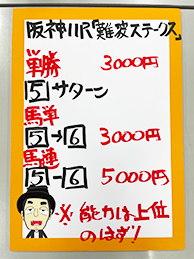 阪神11R「難波ステークス」
単勝 3000円
5 サターン
馬単
5→6 3000円
馬連
5-6 5000円
※能力は上位
のはず!